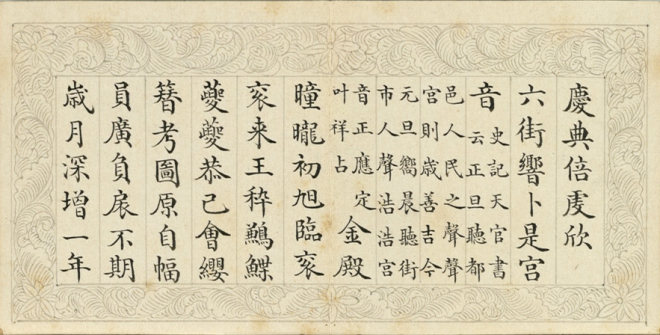 慶典倍虔欣
六街響卜是宮
音史記天官書
云正旦聽都
邑人民之聲聲
宮則歲善吉今
元旦嚮晨聽街
市人聲浩浩宮
音正應定
叶祥占金殿
曈曨初旭臨裒
裒来王稡鶼鰈
夔夔恭己會纓
簪考圖原自幅
員廣負扆不期
歲月深增一年